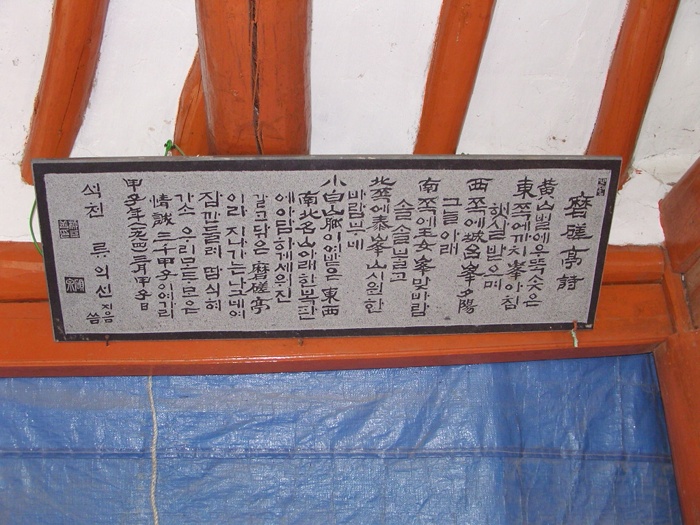 磨磋亭詩
黃山벌에우뚝솟은
東쪽에까치峯아침
햇살을받으며
西쪽에 峯夕陽
그늘아래
南쪽에玉女峯맞바람
솔솔불고
北쪽에泰峯山시원한
바람부네
小白山脈이뻗은東西
南北名山아래한복판
에아담하게세우진
갈고닦은磨磋亭
이라지나가는나그네여
잠깐들려땀식혀
가소우리모두모은
情誠二千甲子이어가리
甲子年 三月甲子日
석천 류의선 지음 씀